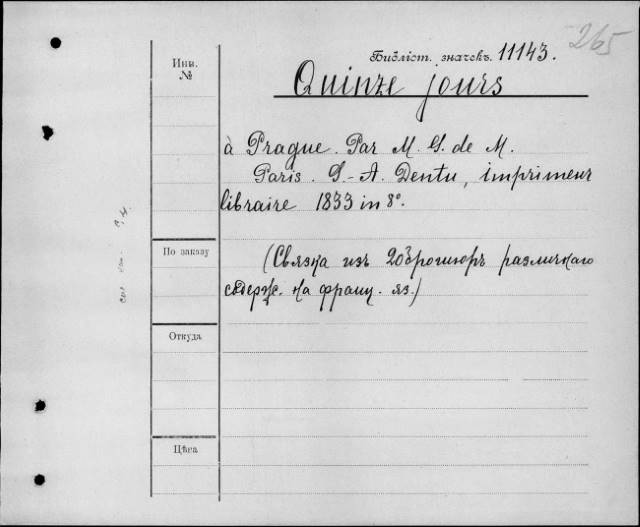 265
Библіот. значекъ. 11143.
Инв.
№
Quinze jours
à Prague. Par M. G. de M.
Paris. G.-A. Dentu, imprimeur
libraire 1833 in 8°.
По заказу
(Связка изъ 20 брошюръ различнаго
содерж. на франц. яз.)
Откуда
Цѣна